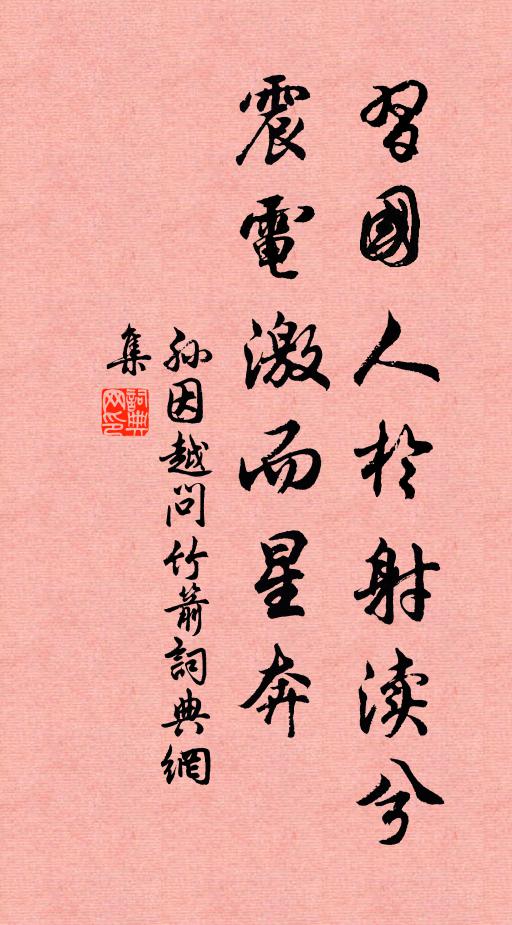 習國人於射渎兮
震電激而星奔
孙因越问竹箭詞典網
集
詞典
网印